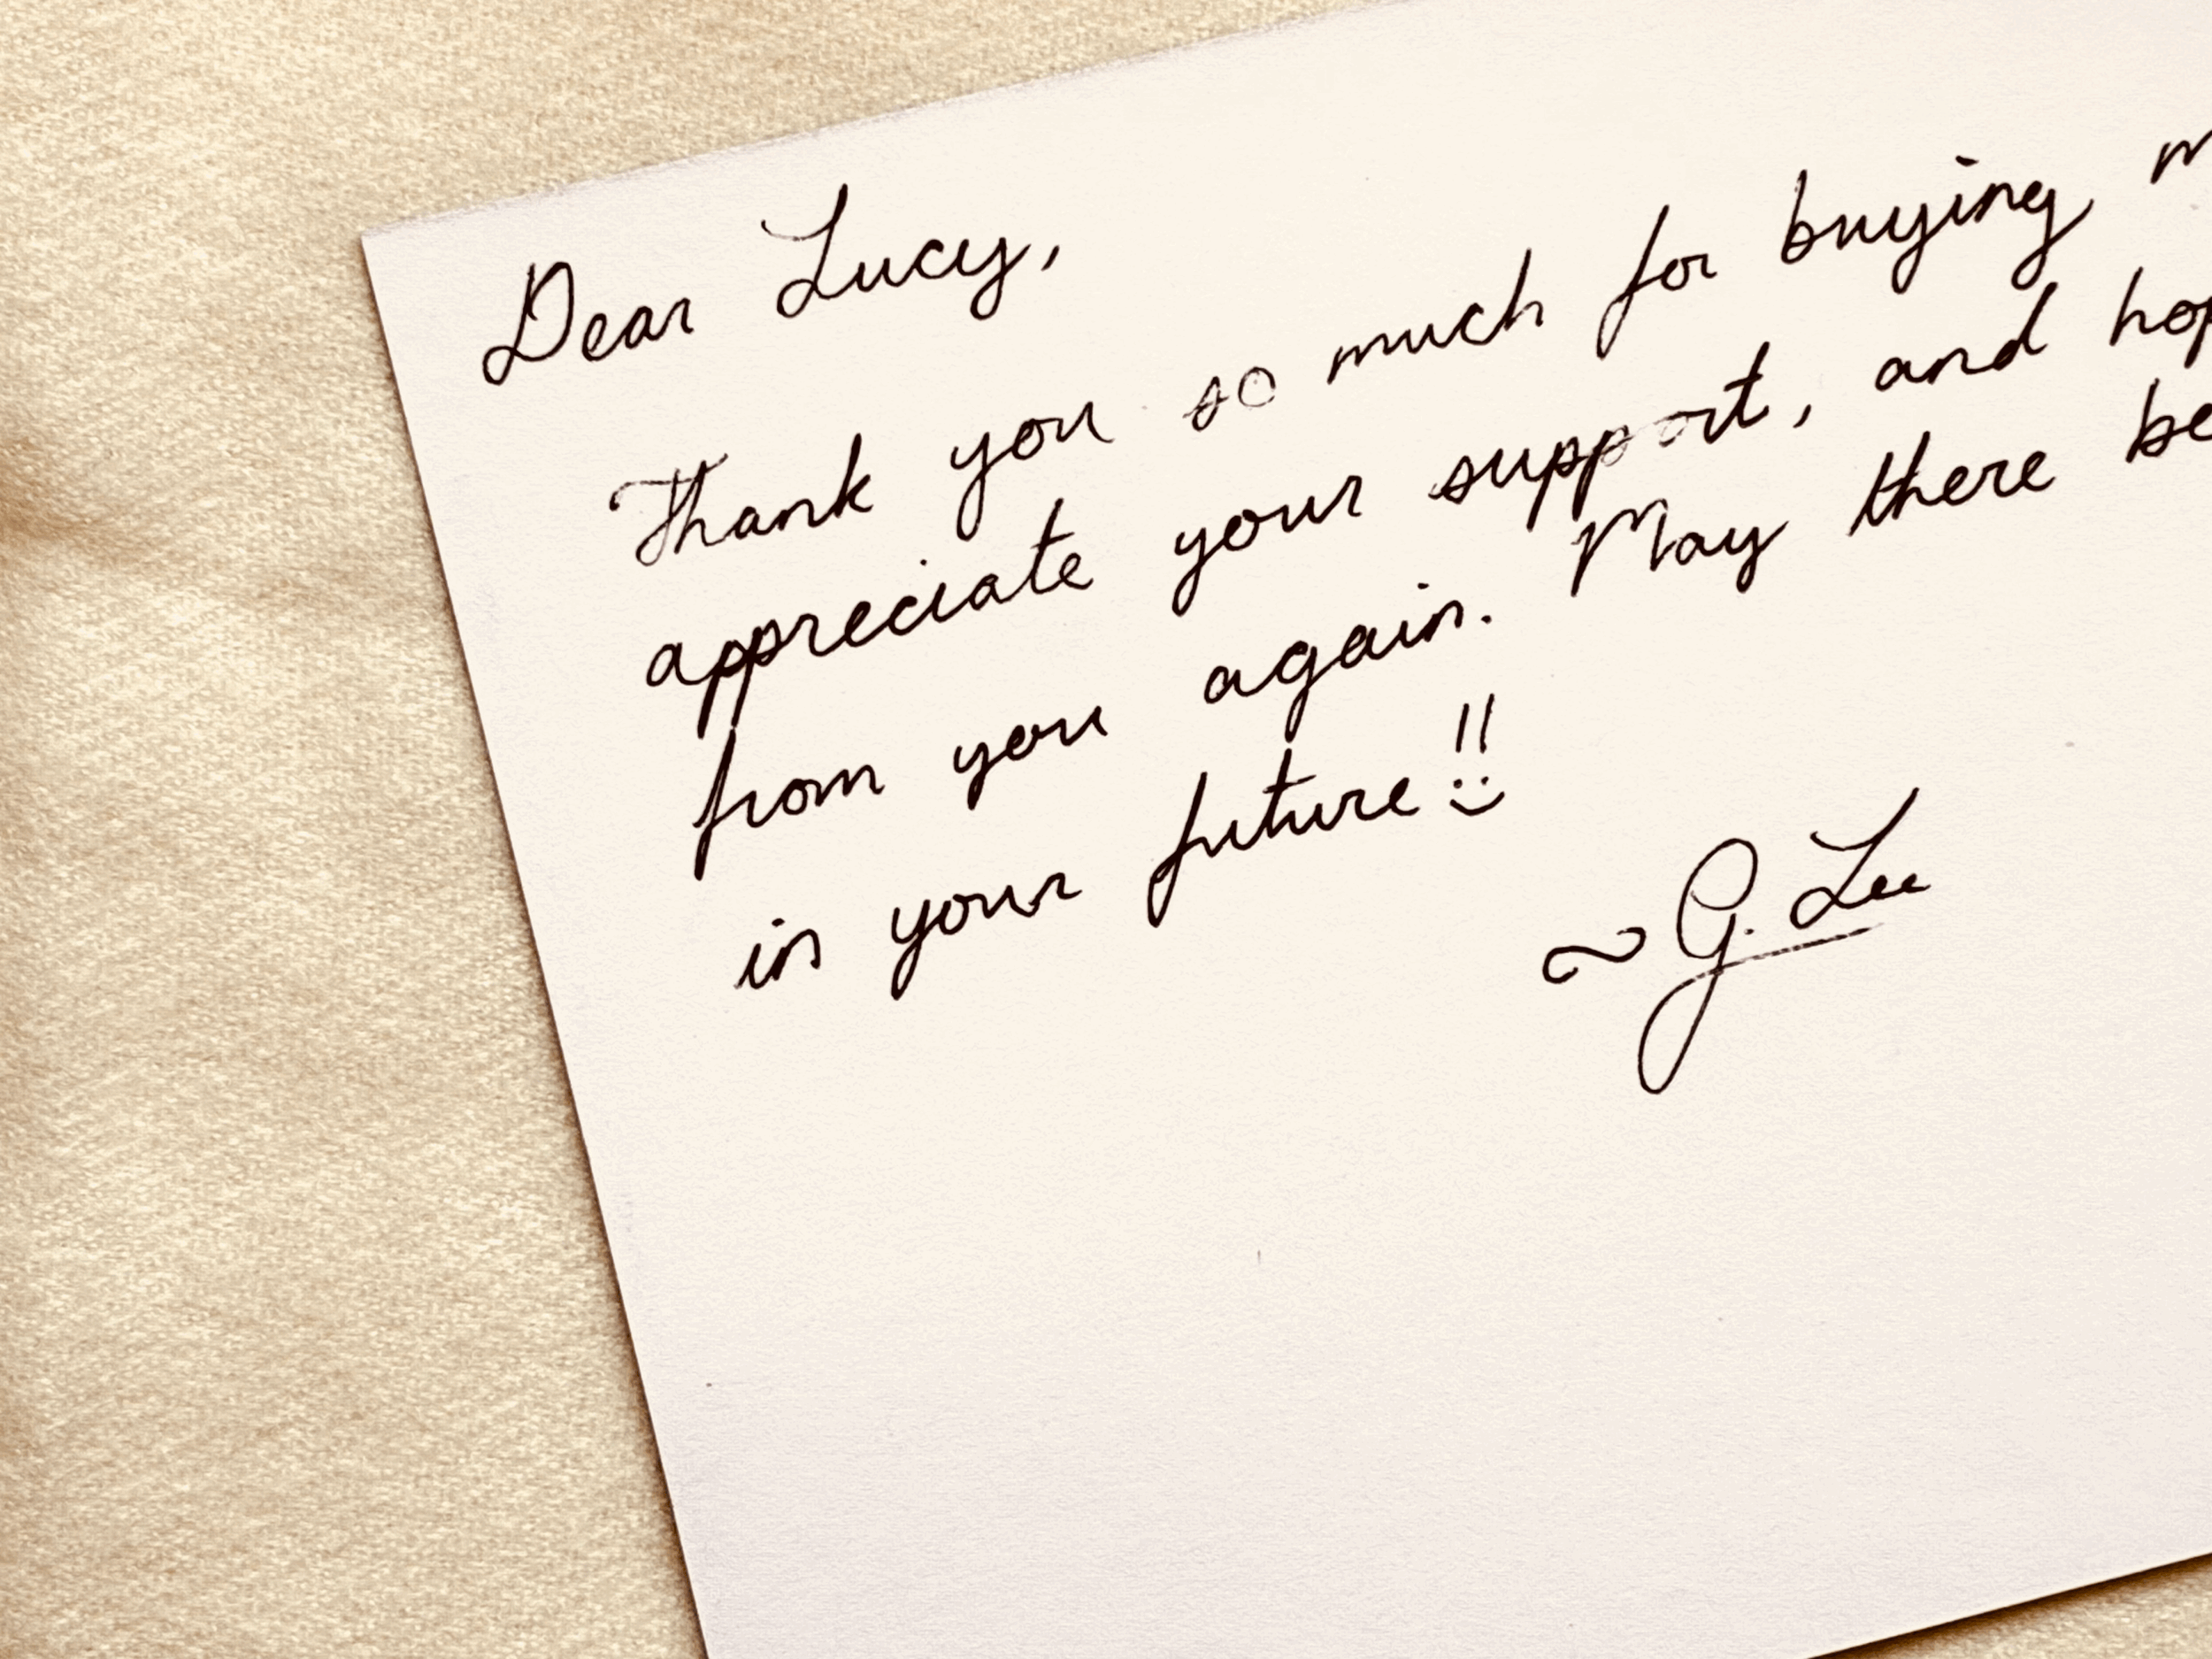 Dear Lucy,
Thank you so much for buying
appreciate your support, and
from you again. May there be
in your future!!
~ G. Lee